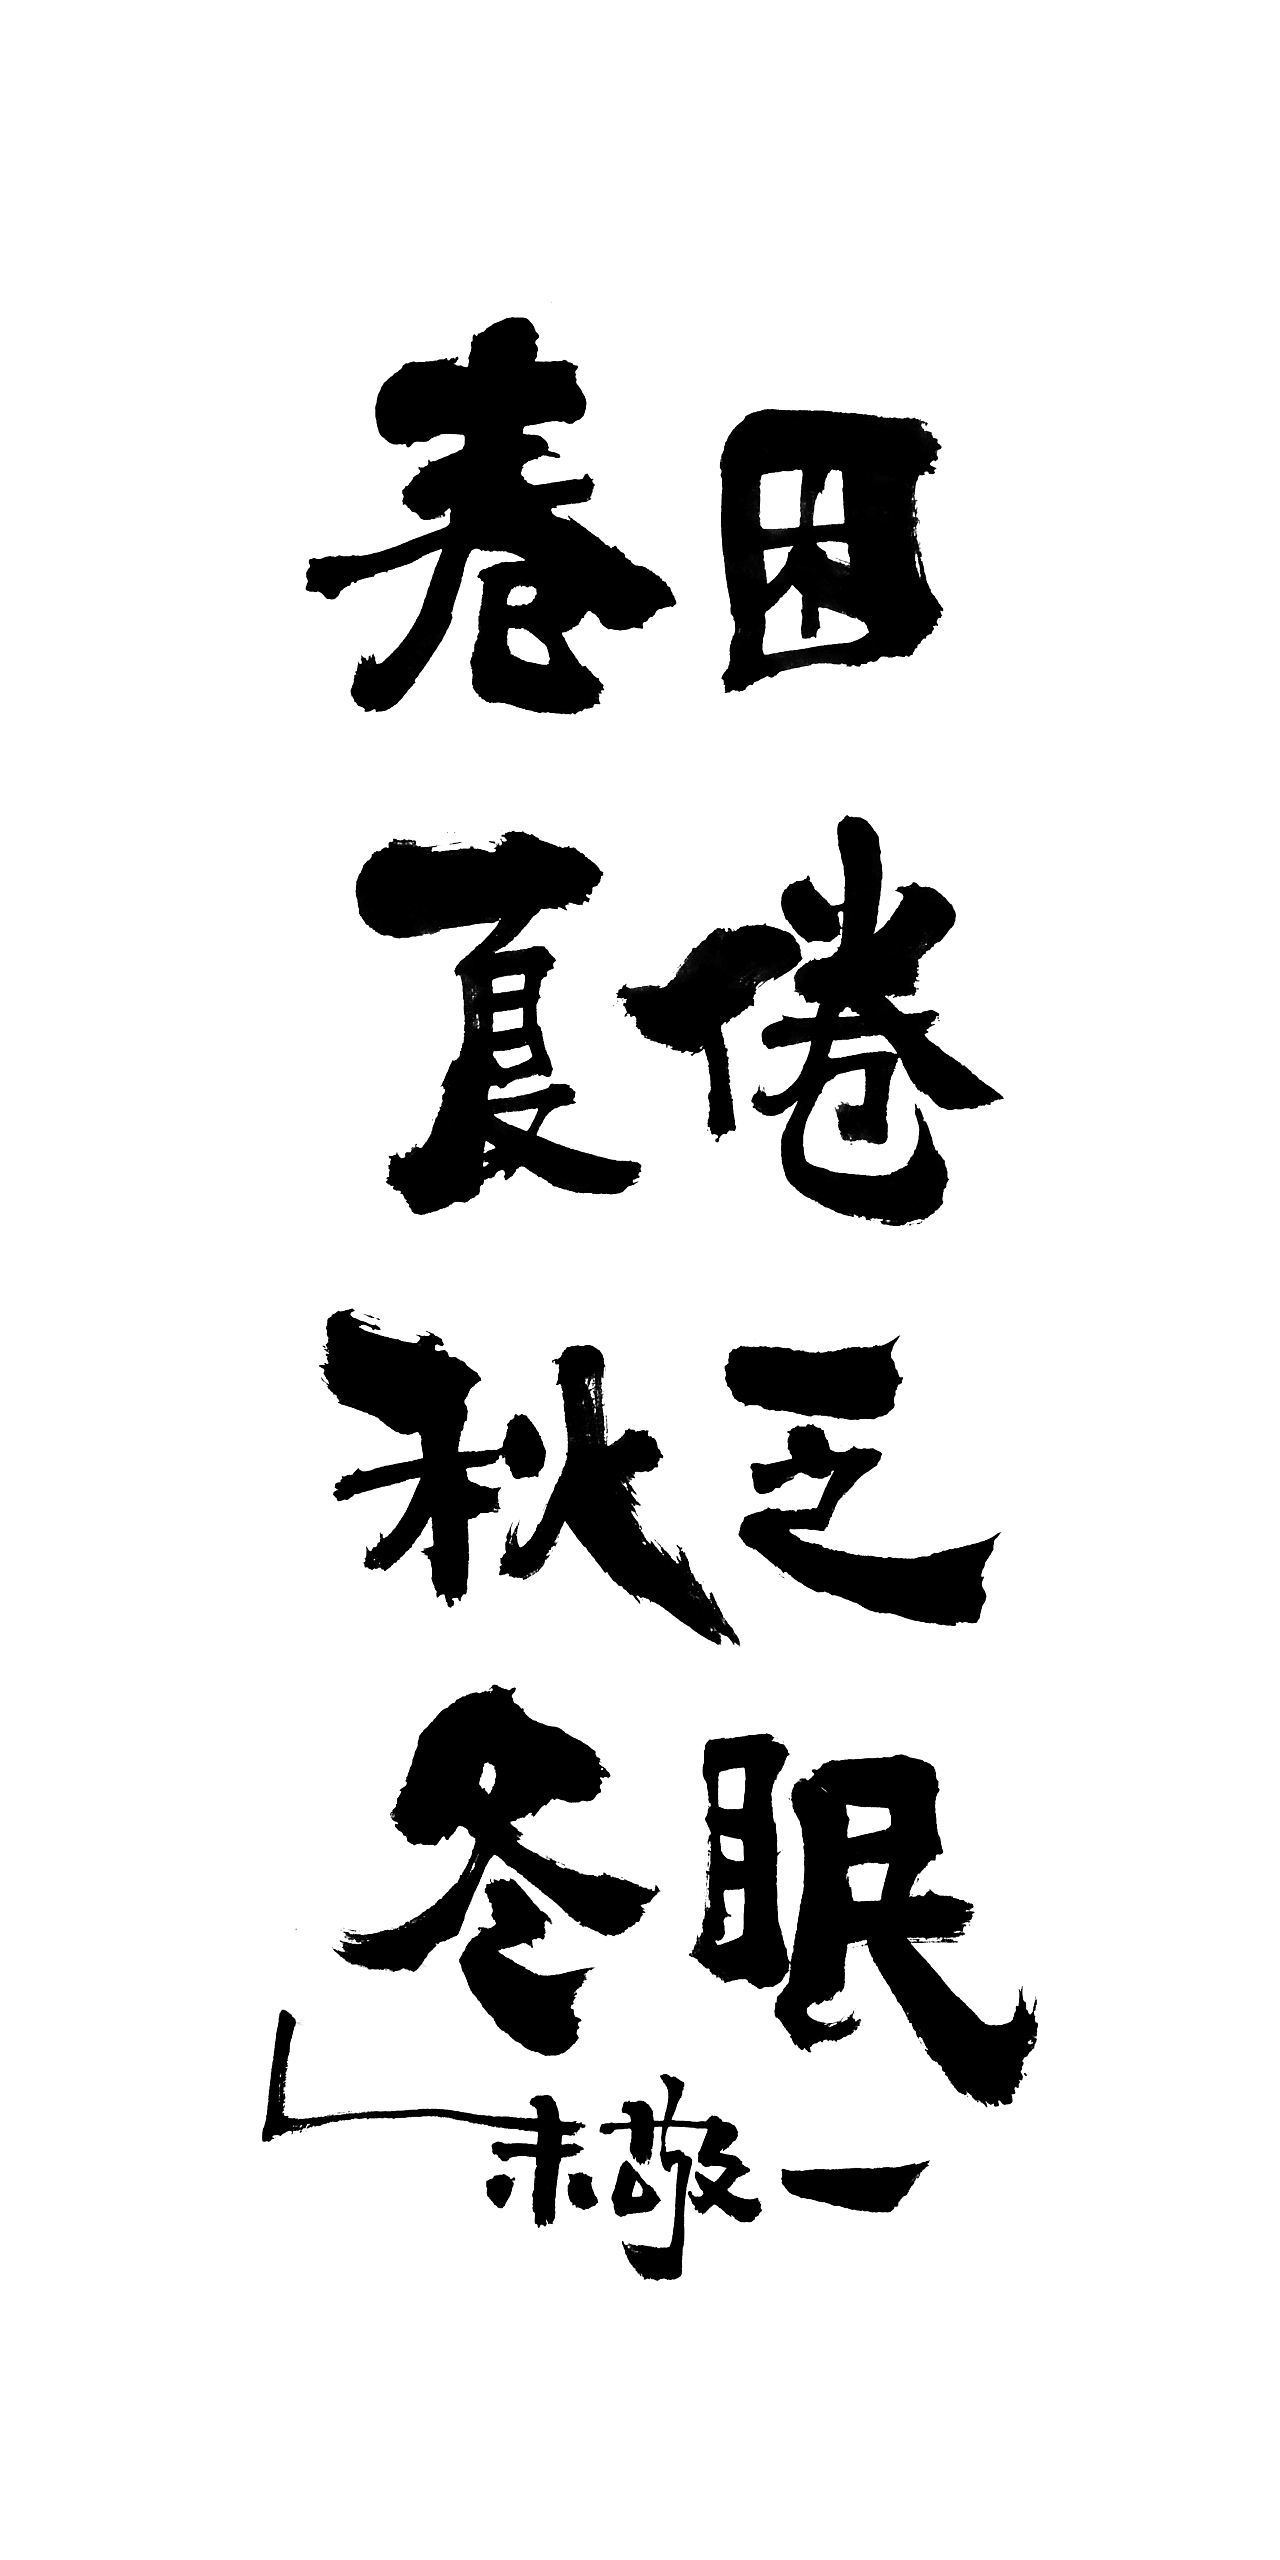 春困
夏倦
秋乏
冬眠
朱敬一